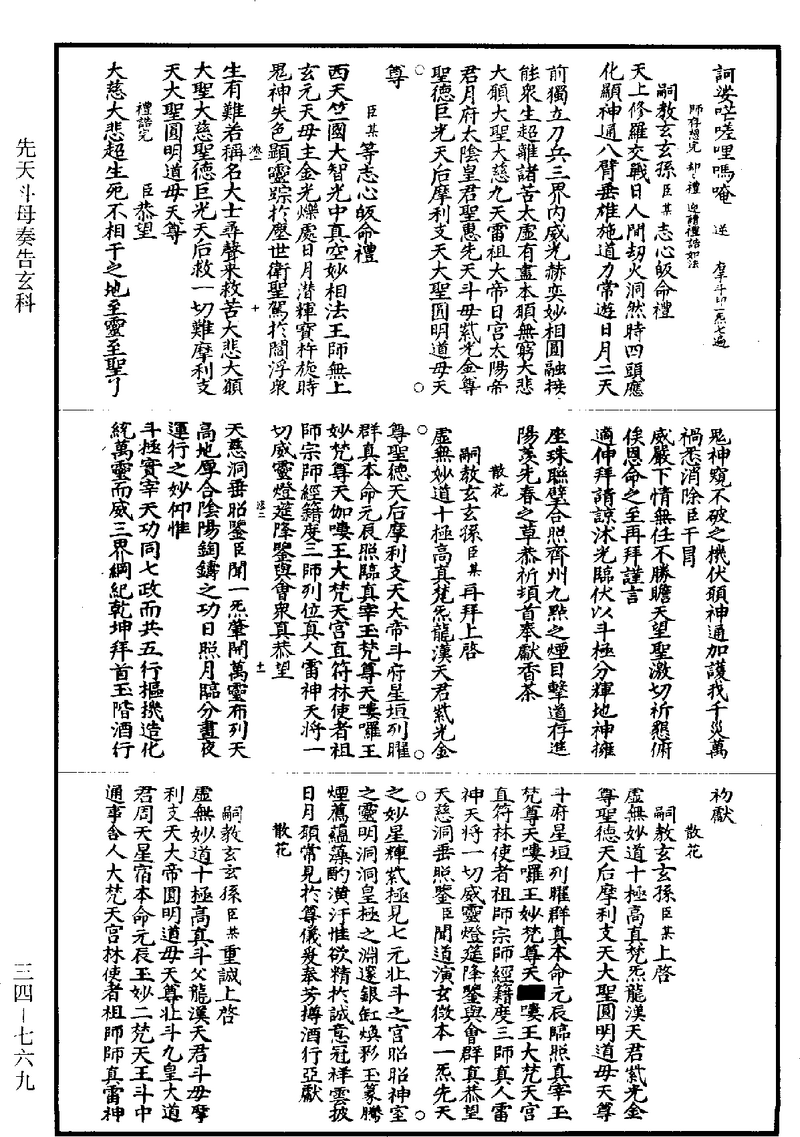 訶娑嘙嗟哩嗎唵　送　摩斗印一炁七遍
師存想完　却礼　迎請禮誥如法
嗣教玄玄孫臣某志心皈命禮
天上修羅交戰日人間刼火洞然時四頭應
化顯神通八臂垂雄施道力常遊日月二天
前獨立刀兵三界內威光赫奕妙相圓融接
能衆生超離諸苦太虛有盡本願無窮大悲
大願大聖大慈九天雷祖大帝日宮太陽帝
君月府太陰皇君聖惠先天斗母紫光金尊
聖德巨光天后摩利支天大聖圓明道母天
尊
臣某等志心皈命禮
西天竺國大智光中真空妙相法王師無上
玄元天母主金光爍處日月潛輝寶杵旋時
鬼神失色顯靈踪於塵世衛聖駕於閻浮衆
生有難若稱名大士尋聲來救苦大悲大願
大聖大慈聖德巨光天后救一切難摩利支
天大聖圓明道母天尊
禮誥完　臣恭望
大慈大悲超生死不相干之地至靈至聖了
鬼神窺不破之機伏願神通加護我千災萬
禍悉消除臣干冐
威嚴下情無任不勝瞻天望聖激切祈懇俯
俟恩命之至再拜謹言
適伸拜請諒沐光臨伏以斗極分輝地神擁
座珠聯璧合照齊州九點之煙目擊道存進
陽羨先春之草恭祈頃首奉獻香茶
散花
嗣教玄玄孫臣某再拜上啓
虛無妙道十極高真梵炁龍漢天君紫光金
尊聖德天后摩利支天大帝斗府星垣列曜
群真本命元辰照臨真宰玉梵尊天嘍囉王
妙梵尊天伽嘍王大梵天宮直符林使者祖
師宗師經籍度三師列位真人雷神天將一
切威靈燈筵降鑒與會衆真恭望
天慈洞垂昭鑒臣聞一炁肇開萬靈布列天
高地厚合陰陽鈞鑄之功日照月臨分晝夜
運行之妙仰惟
斗極實宰天功同七政而共五行樞機造化
統萬靈而威三界綱紀乾坤拜首玉階酒行
初獻
散花
嗣教玄玄孫臣某上啓
虛無妙道十極高真梵炁龍漢天君紫光金
尊聖德天后摩利支天大聖圓明道母天尊
斗府星垣列曜群真本命元辰臨照真宰玉
梵尊天嘍囉王妙梵尊天嘍王大梵天宮
直符林使者祖師宗師經籍度三師真人雷
神天將一切威靈燈筵降鑒與會群真恭望
天慈洞垂照鑒臣聞道演玄微本一炁先天
之妙星輝紫極見七元北斗之宮昭昭神室
之靈明洞洞皇極之淵邃銀缸煥彩玉篆騰
煙薦蘊藻酌潢汙惟欲精於誠意冠祥雲披
日月願常見於尊儀爰奉芳樽酒行亞獻
散花
嗣教玄玄孫臣某重誠上啓
虛無妙道十極高真斗父龍漢天君斗母摩
利支天大帝圓明道母天尊北斗九皇大道
君周天星宿本命元辰玉妙二梵天王斗中
通事舍人大梵天宮林使者祖師師真雷神
先天斗母奏告玄科
三四－七六九